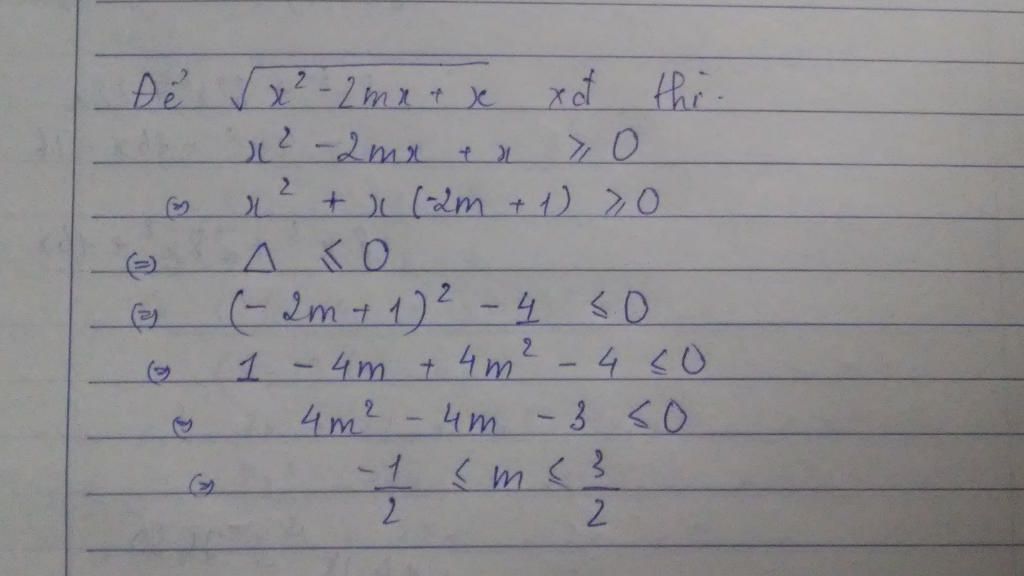 Để √(x² - 2mx + x) xđ thì.
x² - 2mx + x ⩾ 0
(=) x² + x (-2m + 1) ⩾ 0
(=) Δ ⩽ 0
(=) (- 2m + 1)² - 4 ⩽ 0
(=) 1 - 4m + 4m² - 4 ⩽ 0
(=) 4m² - 4m - 3 ⩽ 0
(=) -1/2 ⩽ m ⩽ 3/2